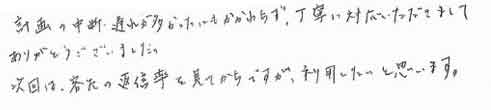 計画の中断、遅れが多かったにもかかわらず、丁寧に対応いただきまして
ありがとうございました。
次回は、客先の返信率を見てからですが、利用したいと思います。